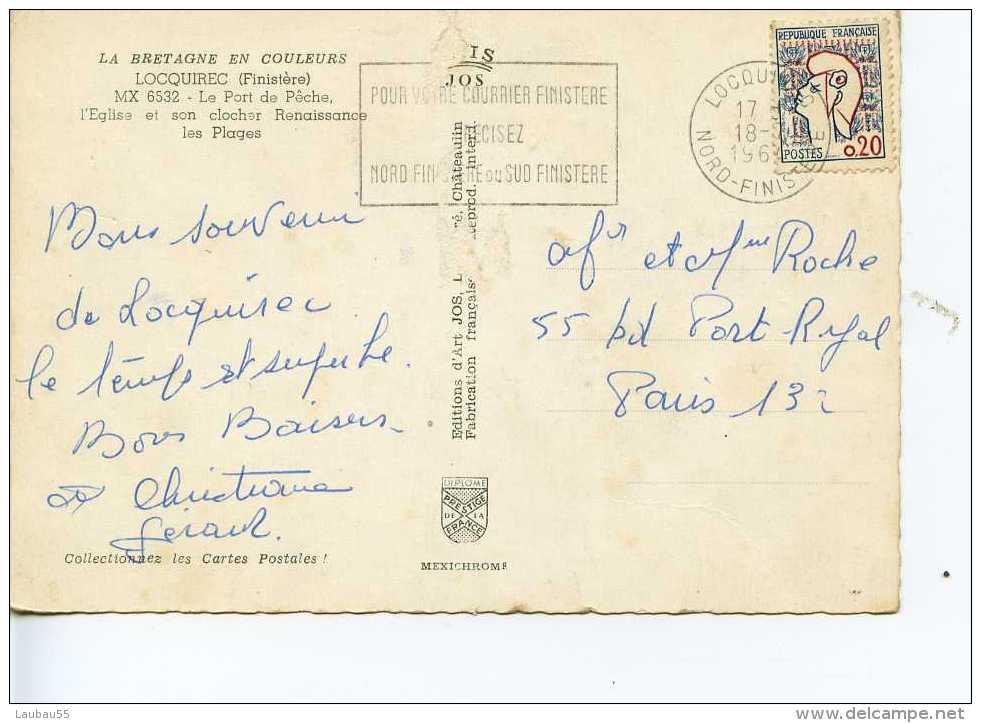 LA BRETAGNE EN COULEURS
LOCQUIREC (Finistère)
MX 6532 - Le Port de Pêche,
l'Eglise et son clocher Renaissance
les Plages
IS
JOS
POUR VOTRE COURRIER FINISTERE
ECISEZ
NORD FINISTERE ou SUD FINISTERE
LOCQUI
17
18-
196
NORD-FINIST
REPUBLIQUE FRANÇAISE
POSTES 0,20
Bons souvenir
de Locquirec
le temps est superbe.
Bons Baisers
Christiane
Gérard.
Collectionnez les Cartes Postales !
Editions d'Art JOS, L é, Châteaulin
Fabrication français Reprod. interd.
DIPLOME
PRESTIGE
DE LA
FRANCE
MEXICHROME
Mr et Mme Roche
55 bd Port-Royal
Paris 13e
Laubau55
www.delcampe.net